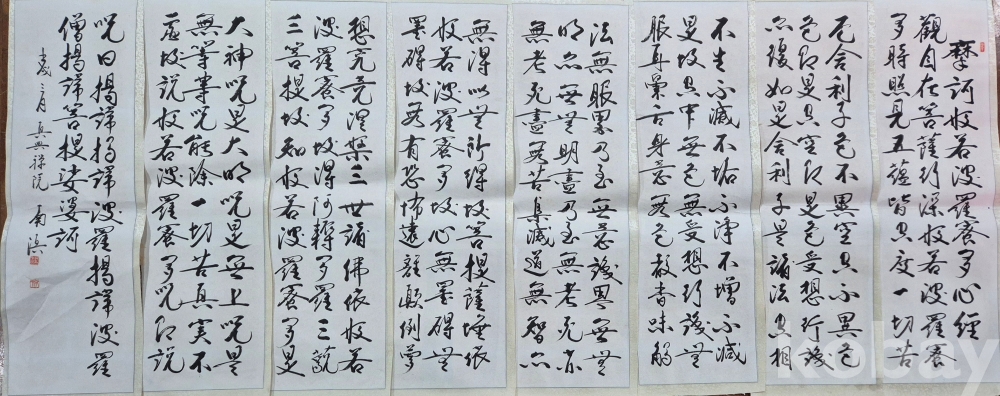 摩訶般若波羅蜜多心經
觀自在菩薩行深般若波羅蜜
多時照見五蘊皆空度一切苦
厄舍利子色不異空空不異色
色即是空空即是色受想行識
亦復如是舍利子是諸法空相
不生不滅不垢不淨不增不減
是故空中無色無受想行識無
眼耳鼻舌身意無色聲香味觸
法無眼界乃至無意識界無無
明亦無無明盡乃至無老死亦
無老死盡無苦集滅道無智亦
無得以無所得故菩提薩埵依
般若波羅蜜多故心無罣碍無
罣碍故無有恐怖遠離顛倒夢
想究竟涅槃三世諸佛依般若
波羅蜜多故得阿耨多羅三藐
三菩提故知般若波羅蜜多是
大神呪是大明呪是無上呪是
無等等呪能除一切苦真實不
虛故說般若波羅蜜多呪即說
呪曰揭諦揭諦波羅揭諦波羅
僧揭諦菩提娑婆訶
歲二月 真興禪院 南
kobay